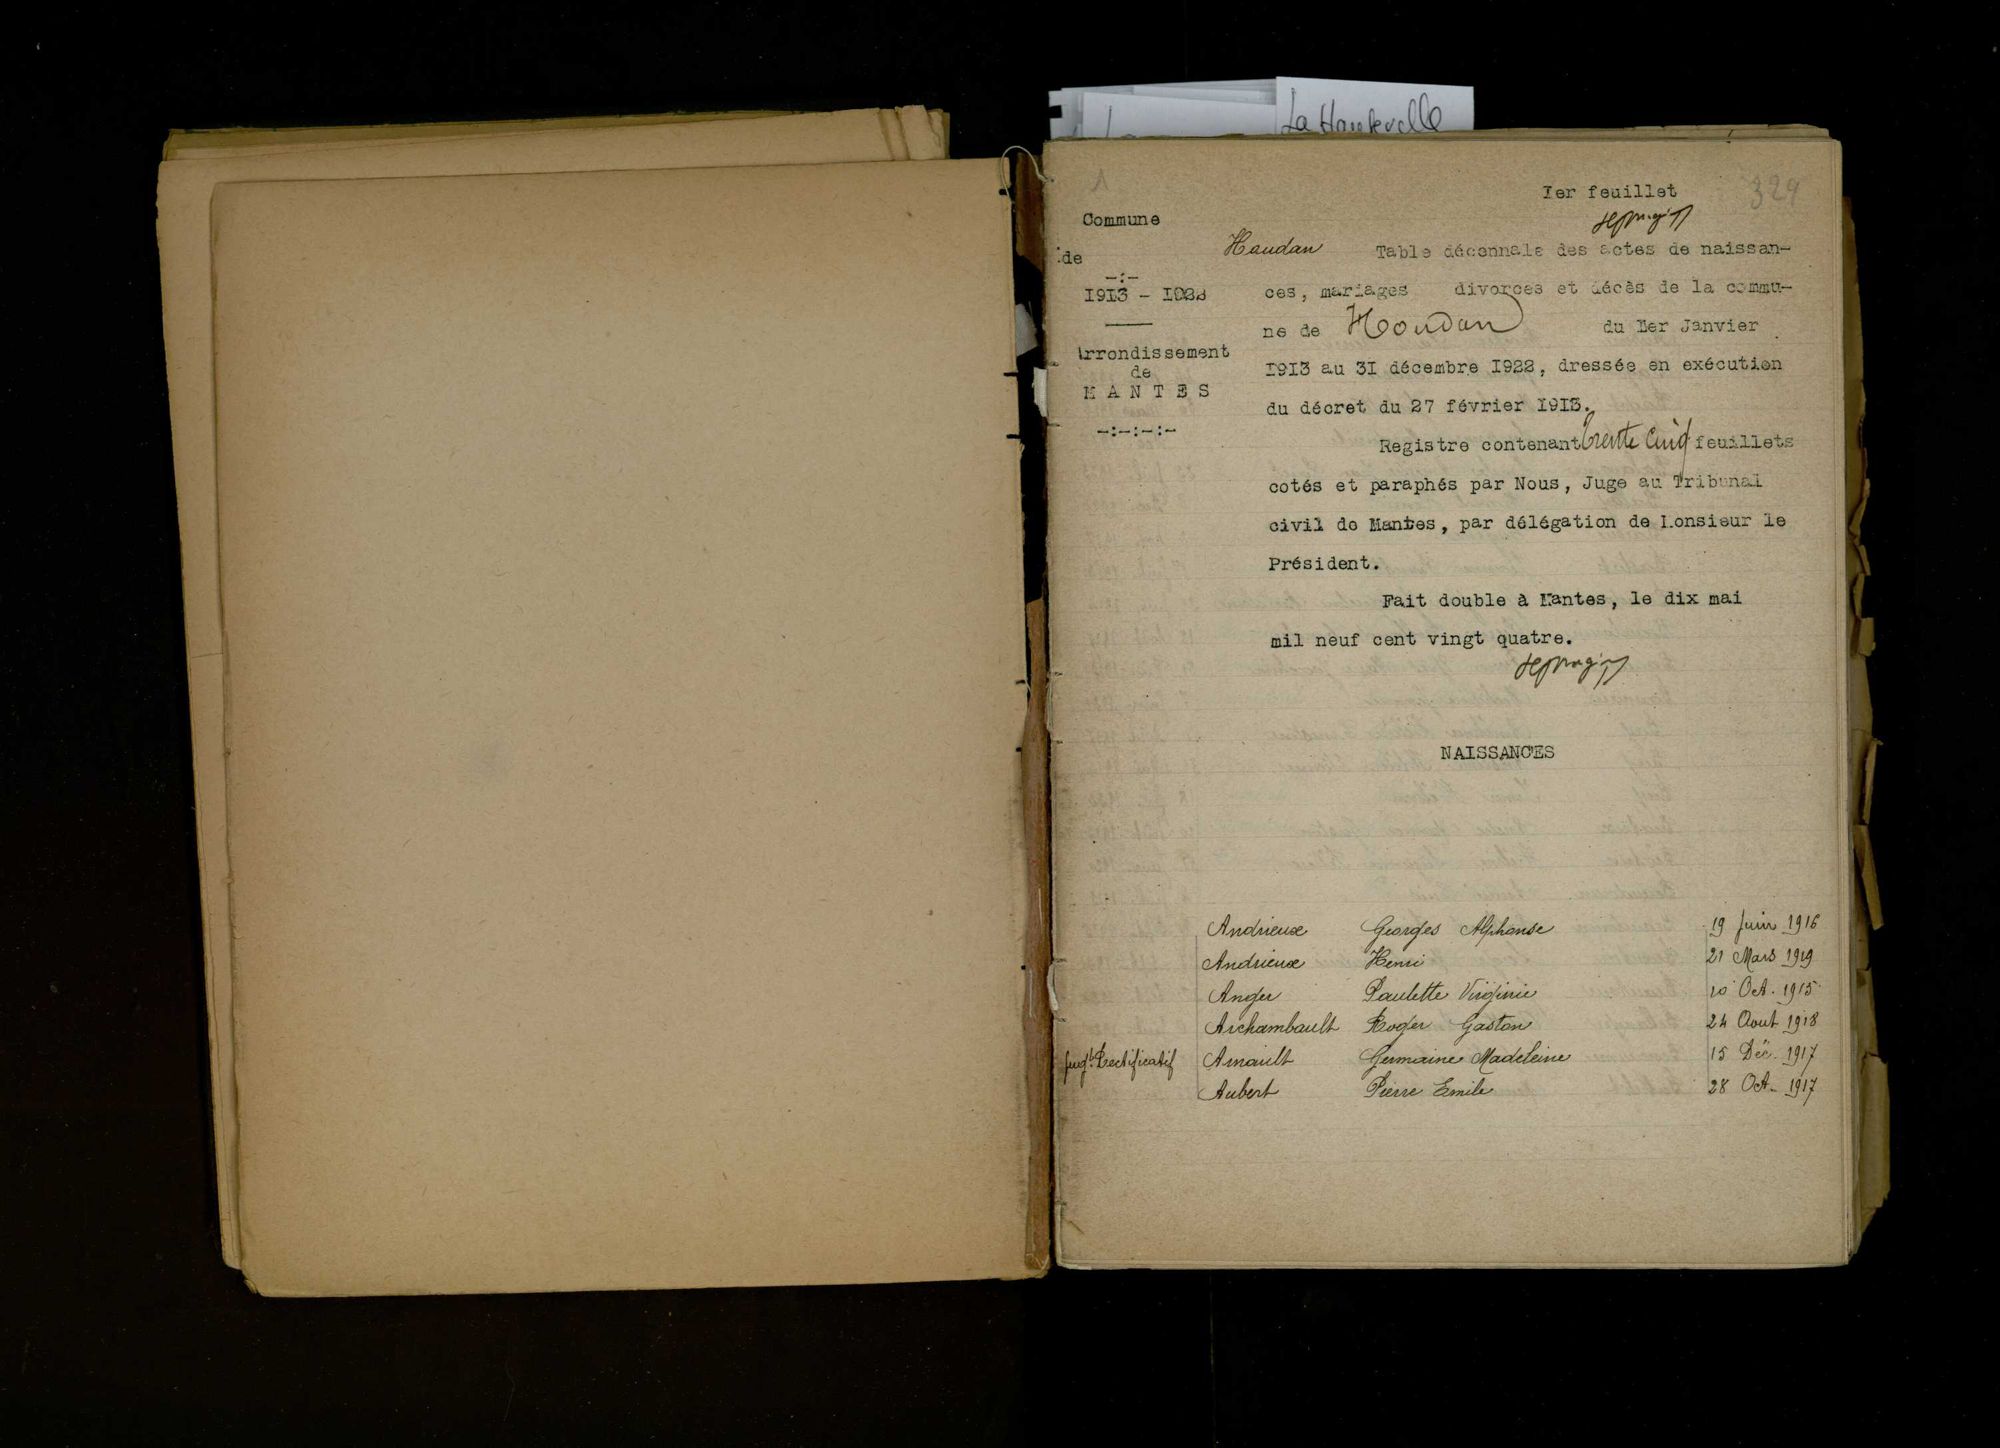 La Hauteville
1
Ier feuillet
329
Commune
de Houdan
-:-
1913 - 1922
Arrondissement
de
MANTES
-:-:-:-
Table décennale des actes de naissan-
ces, mariages divorces et décès de la commu-
ne de Houdan du Ier Janvier
1913 au 31 décembre 1922, dressée en exécution
du décret du 27 février 1913.
Registre contenant trente cinq feuillets
cotés et paraphés par Nous, Juge au Tribunal
civil de Mantes, par délégation de Monsieur le
Président.
Fait double à Mantes, le dix mai
mil neuf cent vingt quatre.
NAISSANCES
Andrieux Georges Alphonse 19 Juin 1916
Andrieux Henri 21 Mars 1919
Anger Paulette Virginie 10 Oct. 1915
Archambault Roger Gaston 24 Aout 1918
Jugt Rectificatif Arnault Germaine Madeleine 15 Déc. 1917
Aubert Pierre Emile 28 Oct. 1917